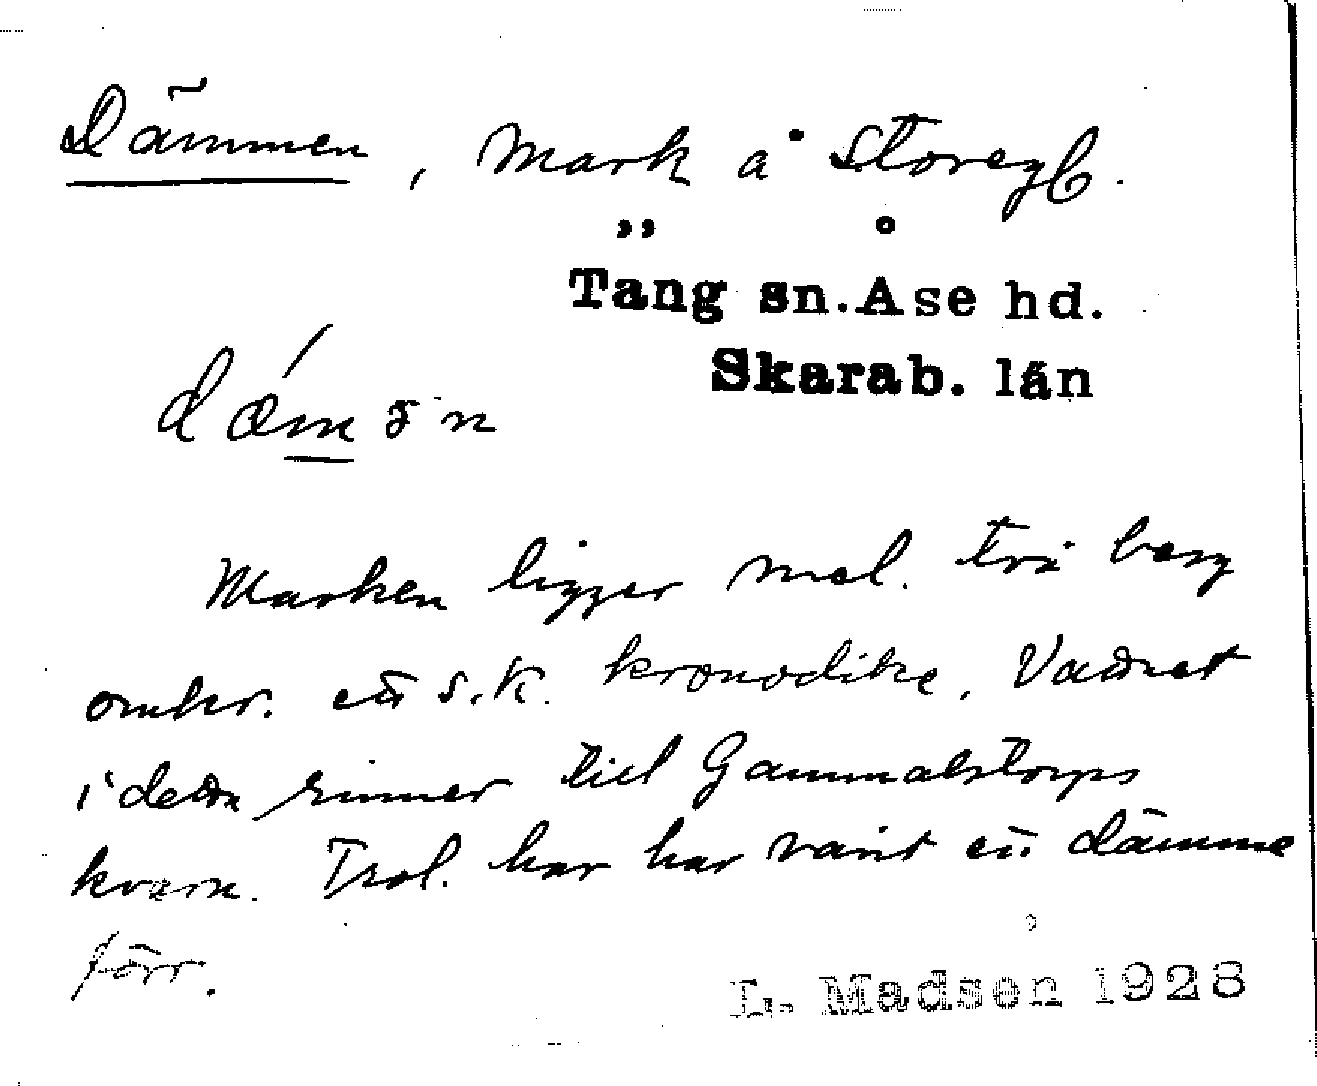 Dämmen, Mark å Storegb.
Täng sn. Åse hd.
Skarab. län
dǽmən
Marken ligger mel. två berg
omkr. ett s.k. kronodike. Vattnet
i detta rinner till Gammalstorps
kvarn. Trol. har har varit ett dämme
förr.
L. Madsen 1928